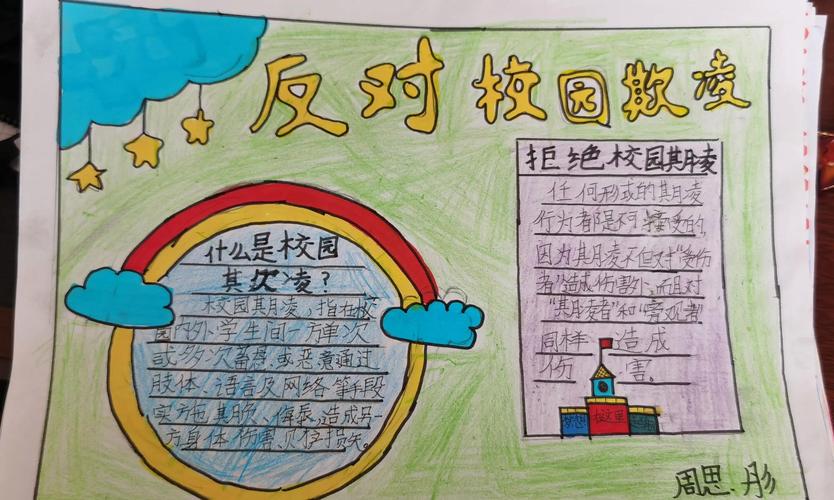 反对校园欺凌
拒绝校园欺凌
任何形式的欺凌
行为都是不可接受的,
因为欺凌不但对"受伤
者"造成伤害,而且对
"欺凌者"和"旁观者"
同样 造成
伤 害。
在这里
什么是校园
欺凌?
校园欺凌,指在校
园内外学生间一方单次
或多次蓄意或恶意通过
肢体、语言及网络等手段
实施欺、侮辱、造成另一
方身体伤害、财产损失。
周思彤